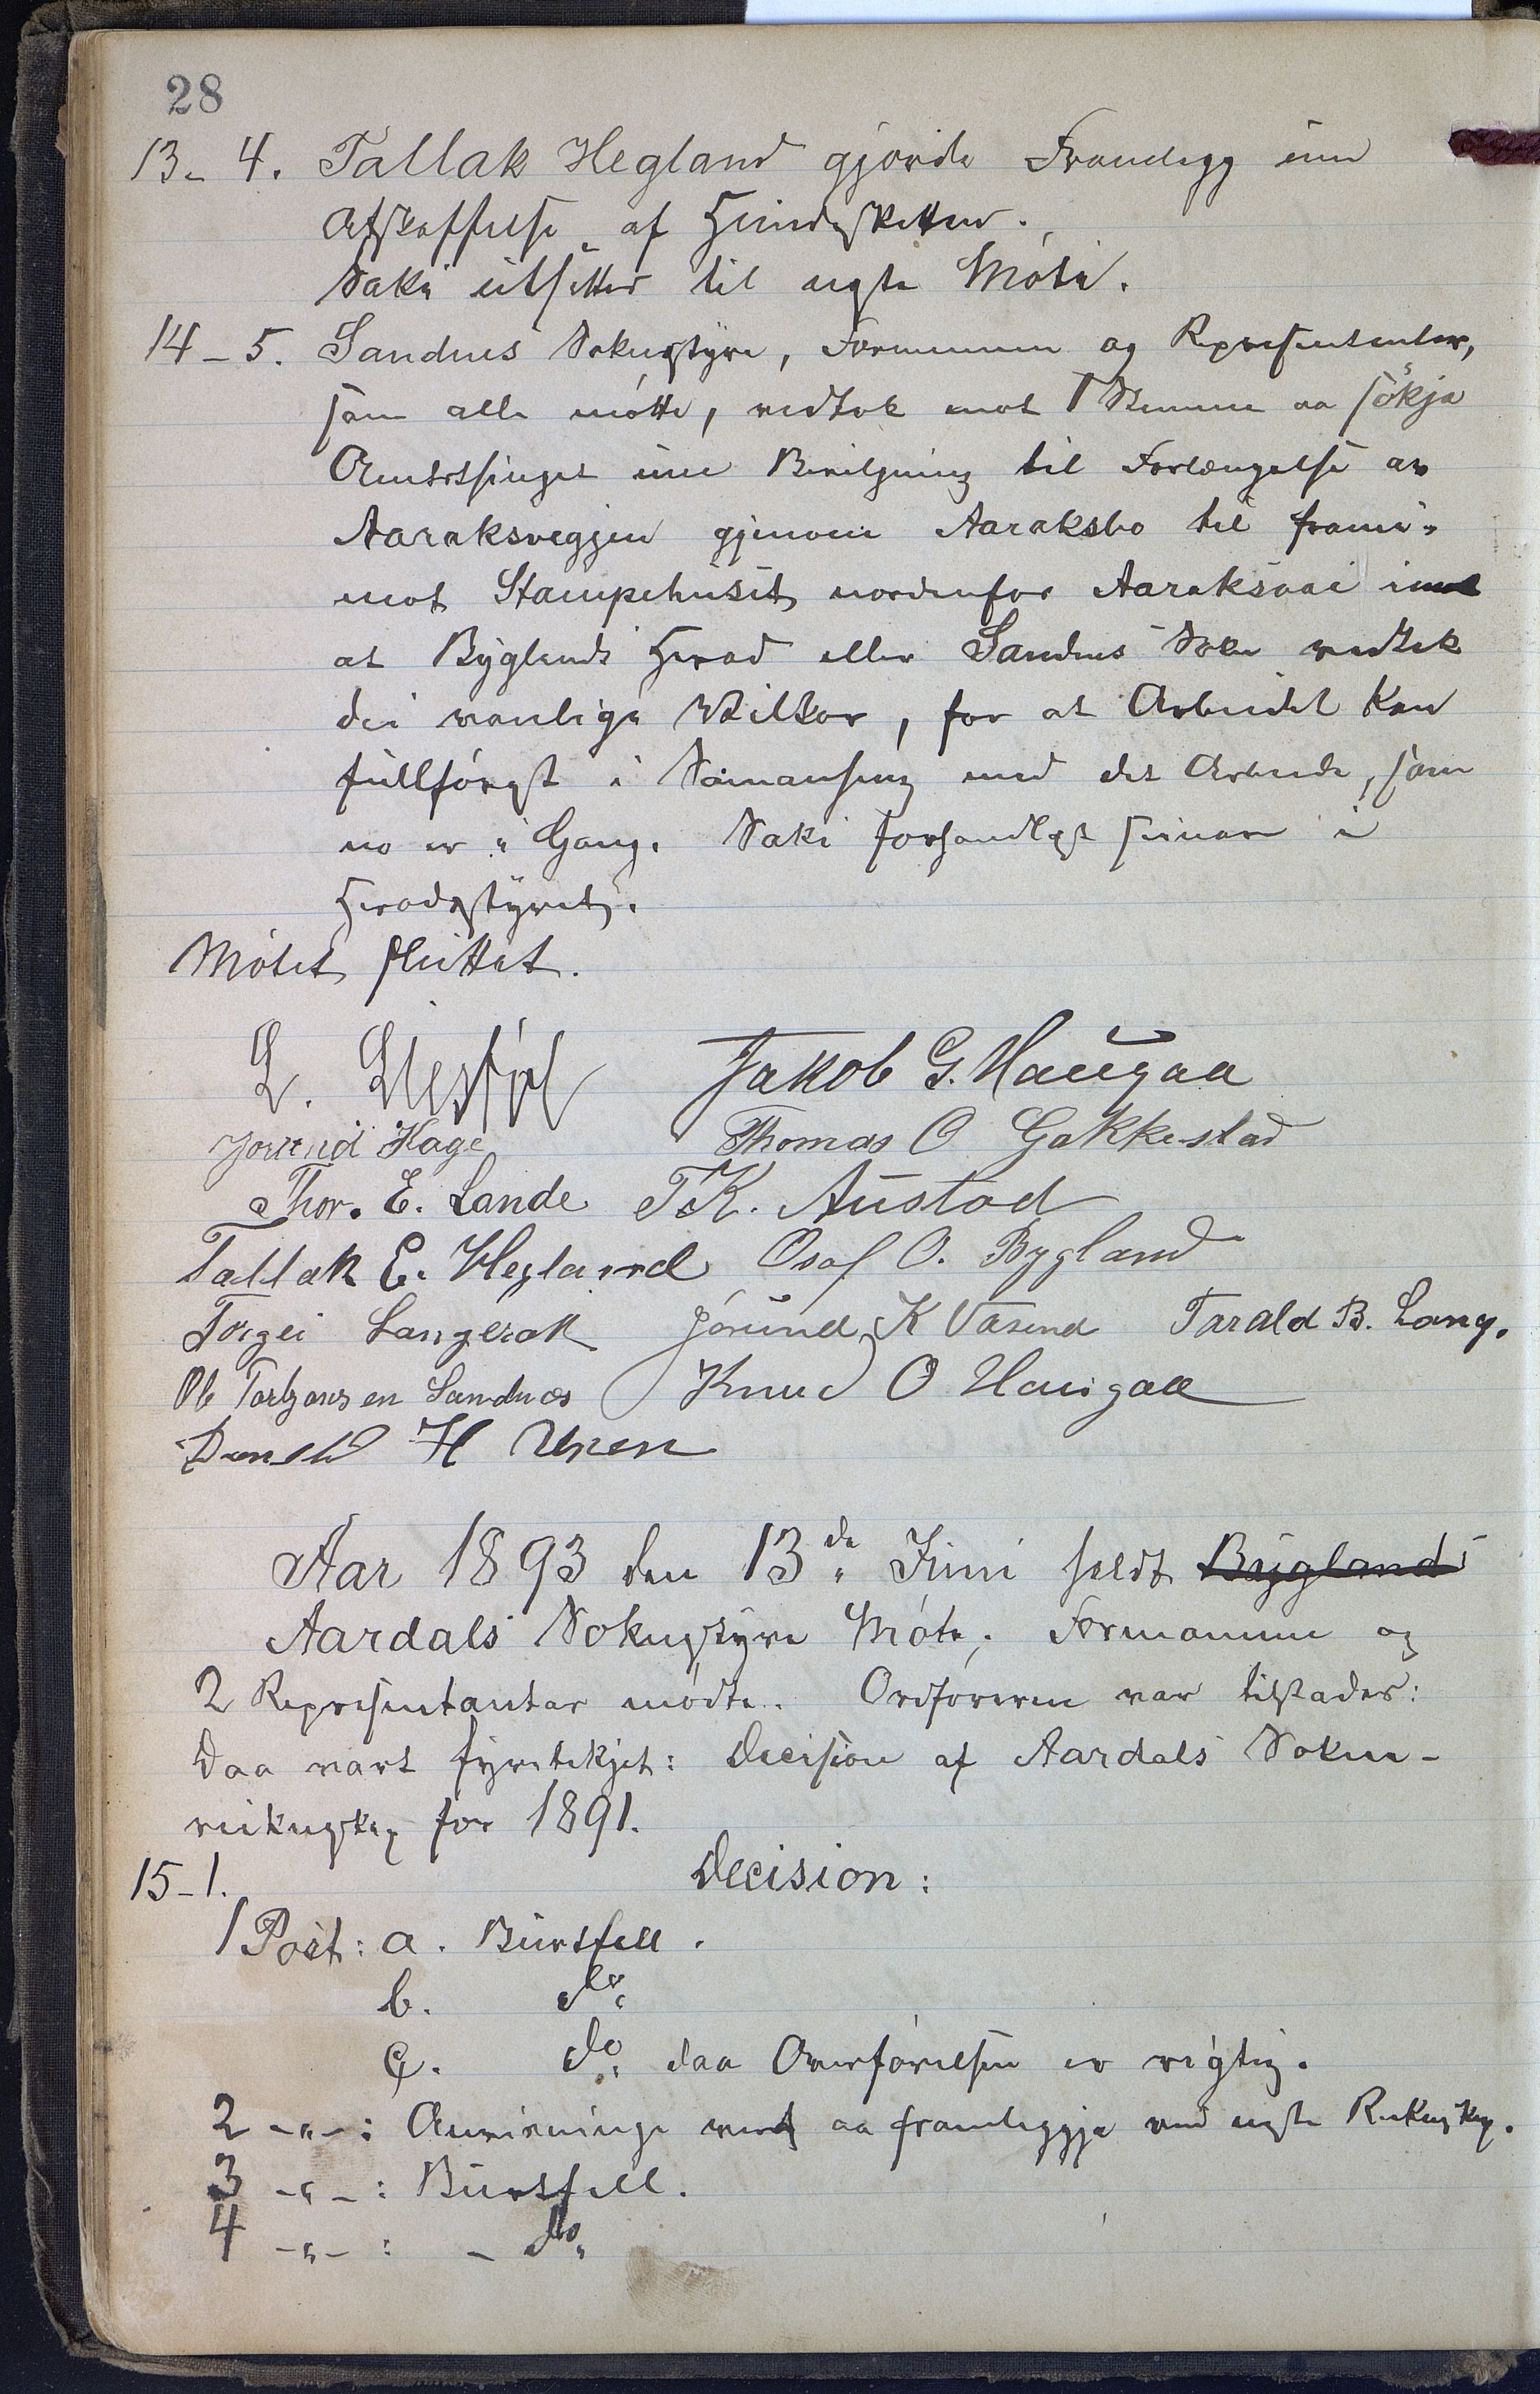 28
13- 4. Tallak Hegland gjorde Framlegg um
Afskaffelse af Hundeskatten.
Saki utsettes til nęste Móte.
14 - 5. Sandnes Soknestyre, Formennene og Representanter,
som alle mótte, vedtok mot 1 Stemme aa sökja
Amtstinget um Bevilgning til Forlængelse av
Aaraksveggjen gjenom Aaraksbo til fram i-
mot Stampehuset nordenfor Aaraksaai imot
at Byglands Herad eller Sandnes Sokn vedtek
dei vanlige Vilkor, for at Arbeidet kan
fullfórast i Samanheng med det Arbeide, som
no er i Gang. Saki forhandlast seinare i
Heradsstyret.
Mótet sluttat.
L. Liestøl Jakob G. Haugaa
Jorund Hage Thomas O Gakkestad
Thor. E. Lande T K. Austad
Tallak E. Hegland Osof O. Bygland
Torgei Langerak Jórund K Vasend Tarald B. Lang.
Ole Torbjønsen Sandnæs Knud O Haugaa
H Uren
Aar 1893 den 13de Juni heldt Byglands
Aardals Soknestyre Móte; Formannen og
2 Representantar mødte. Ordføreren var tilstades:
Daa vart fyretekjet: Decision af Aardals Sokne-
reikneskap for 1891.
15-1. Decision:
1 Post: a. Burtfell.
b. do.
c. do. daa Overførelsen er rigtig.
2 -"- : Anvisninge verd aa framleggja ved neste Rekneskap.
3 -"- : Burtfell.
4 -"- : - do.